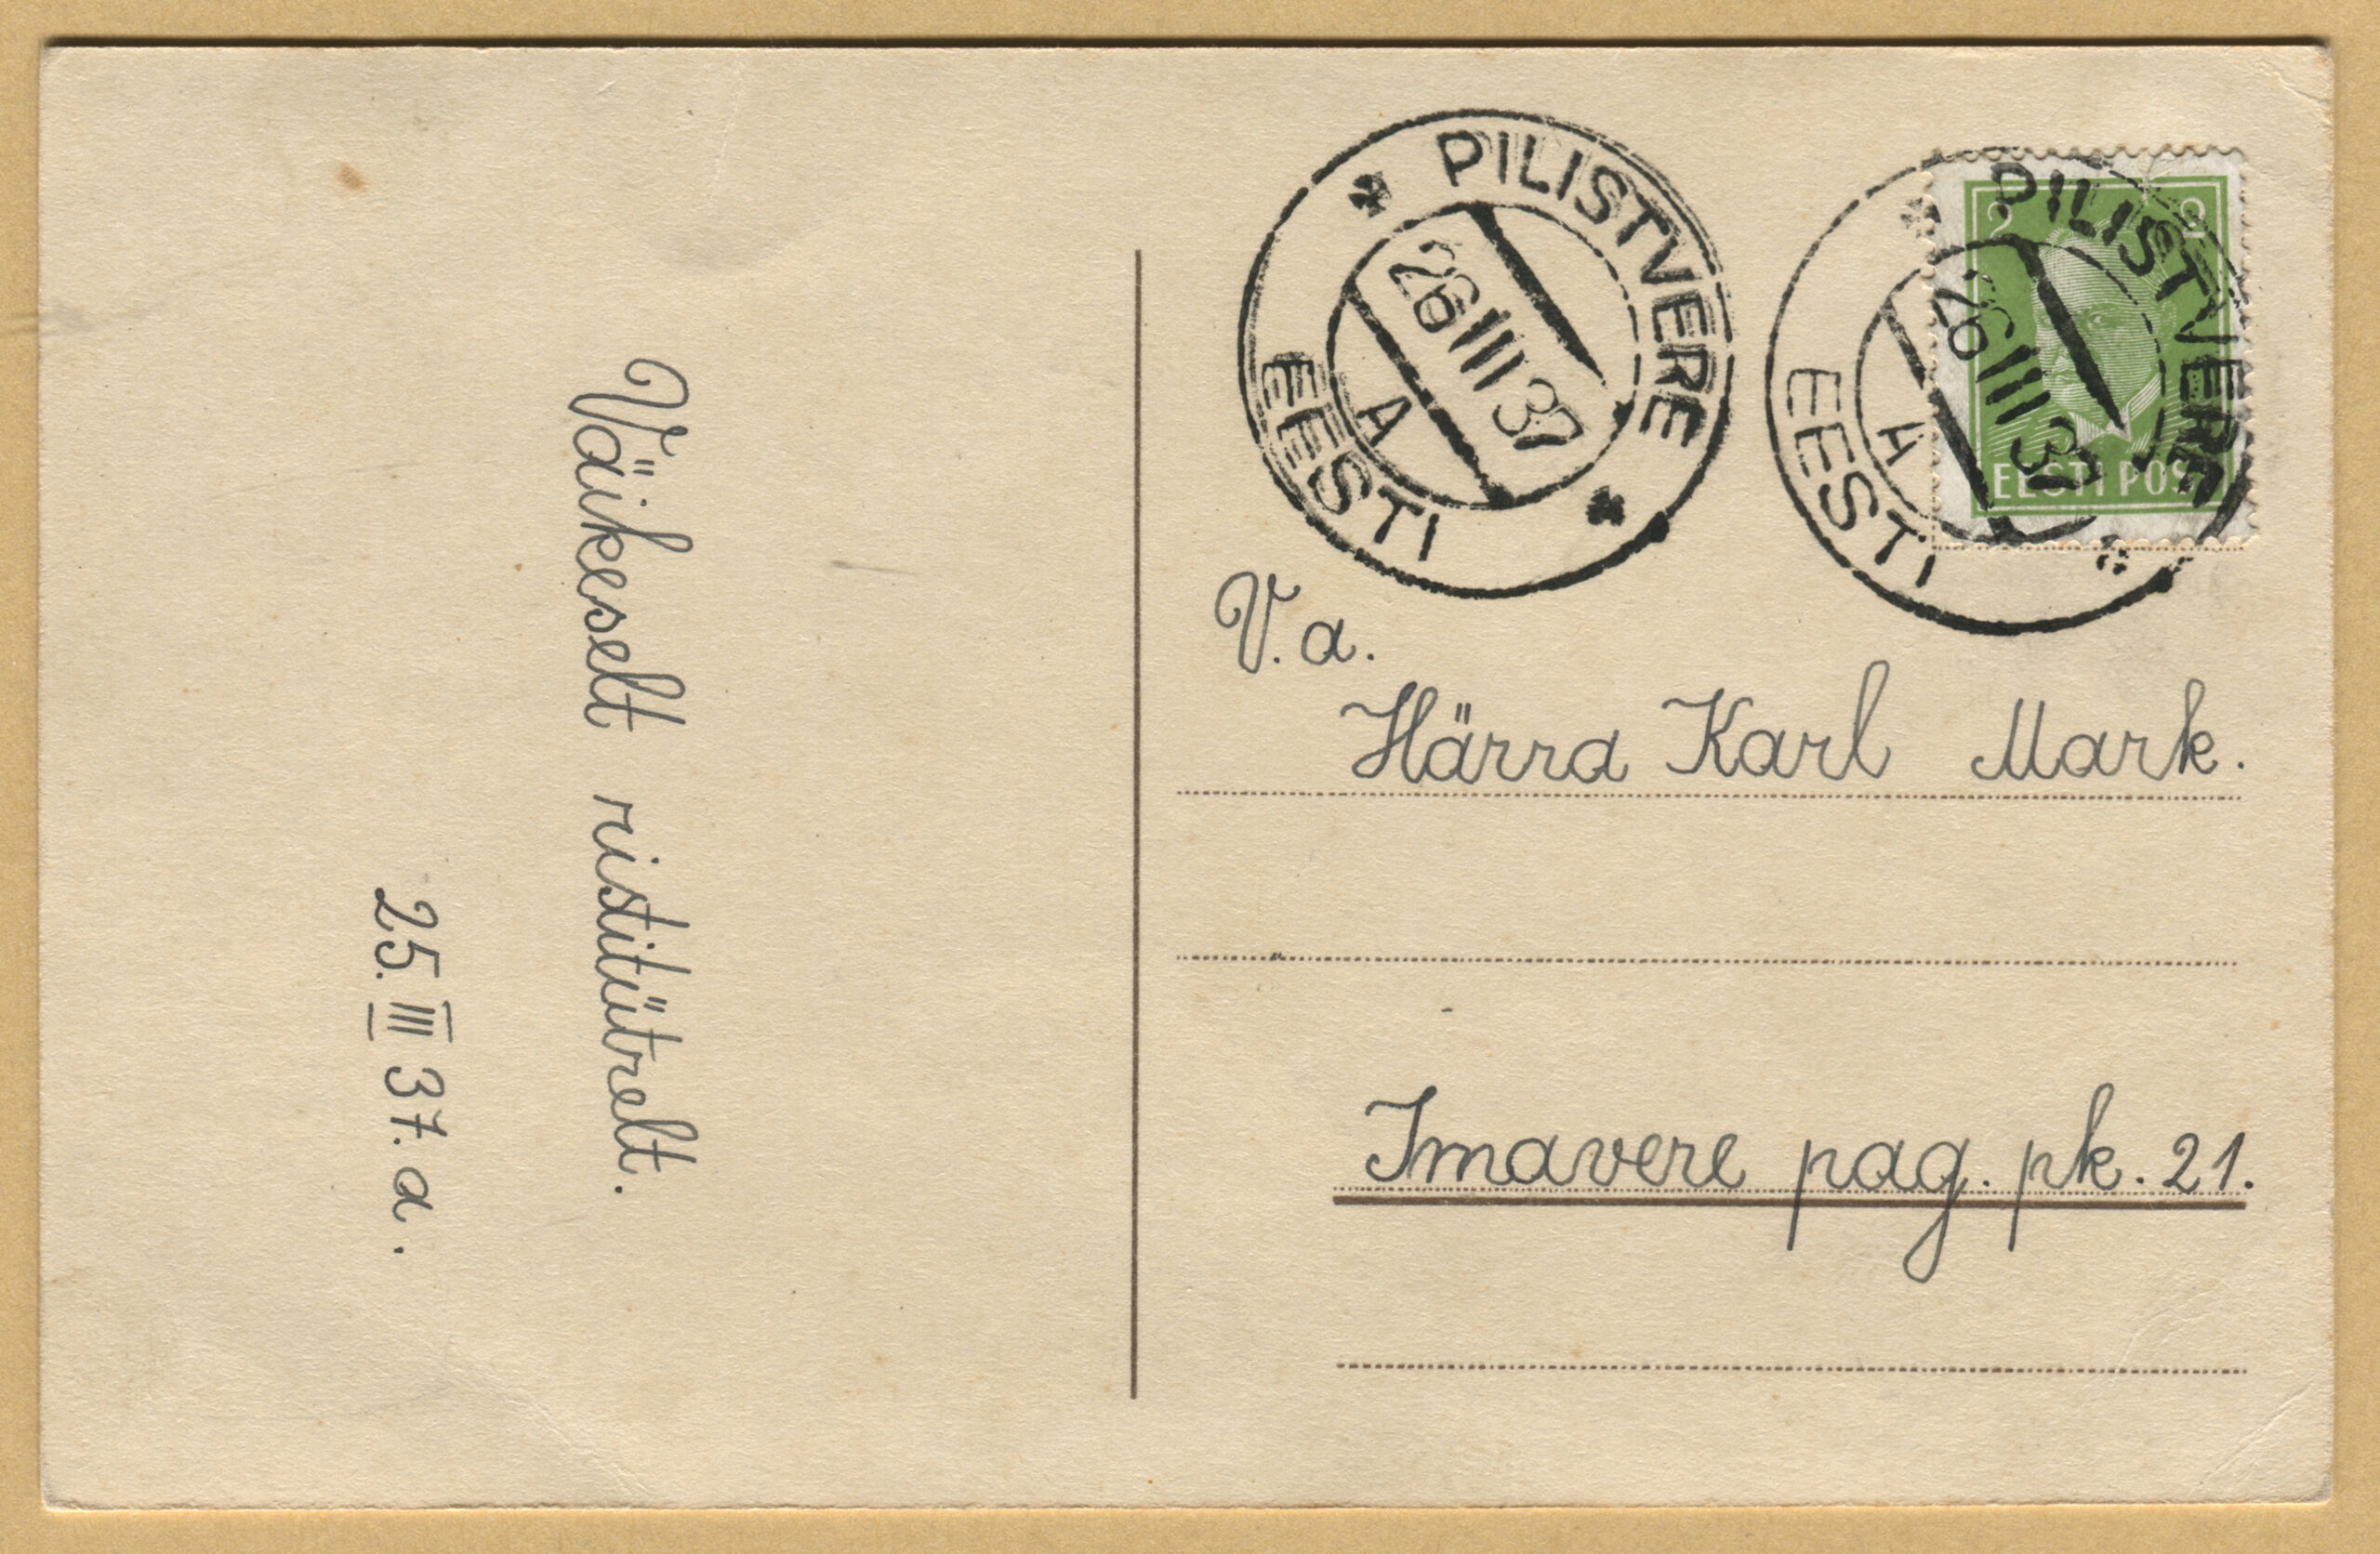 Väikeselt ristitütrelt.
25. III 37. a.
* PILISTVERE *
26 III 37
A
EESTI
PILISTVERE
26 III 37
A
EESTI
2 2
EESTI POST
V. a.
Härra Karl Mark.
Imavere pag. pk. 21.